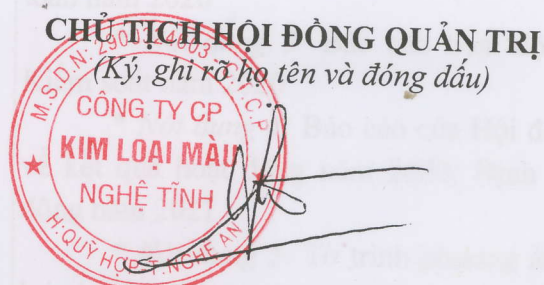 CHỦ TỊCH HỘI ĐỒNG QUẢN TRỊ
(Ký, ghi rõ họ tên và đóng dấu)
M.S.D.N: 2900324603 C.T.C.P
CÔNG TY CP
KIM LOẠI MÀU
NGHỆ TĨNH
H.QUỲ HỢP-T.NGHỆ AN